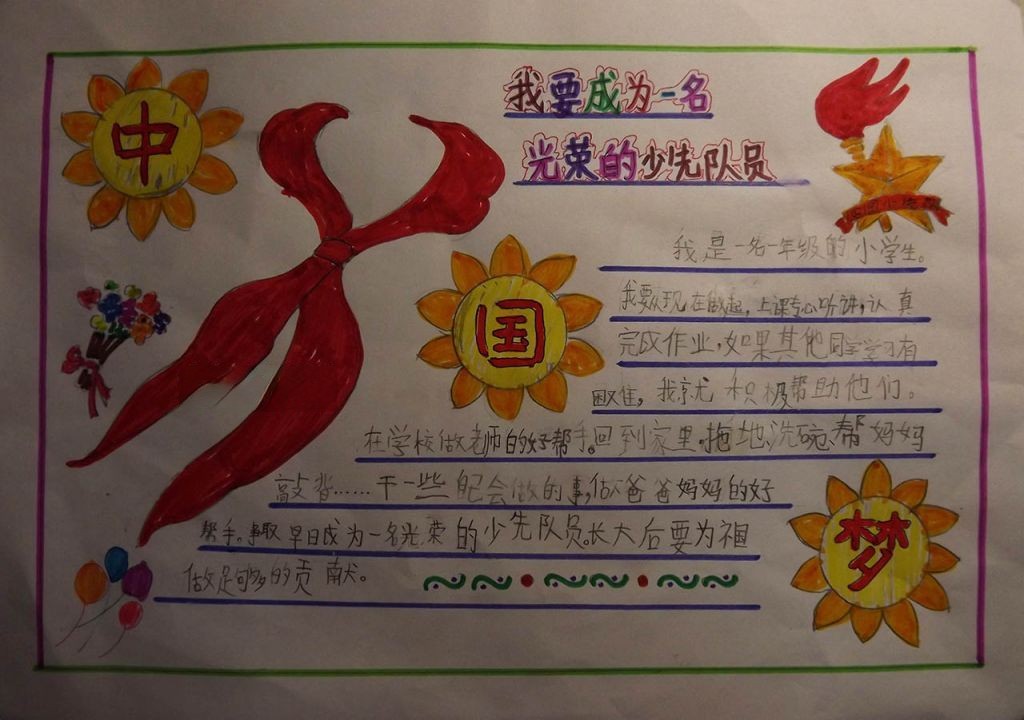 中
我要成为一名
光荣的少先队员
国
我是一名一年级的小学生。
我要从现在做起，上课专心听讲，认真
完成作业，如果其他同学学习有
困难，我就积极帮助他们。
在学校做老师的好帮手。回到家里，拖地、洗碗、帮妈妈
敲背……干一些能会做的事，做爸爸妈妈的好
帮手。争取早日成为一名光荣的少先队员。长大后要为祖国
做足够多的贡献。
梦